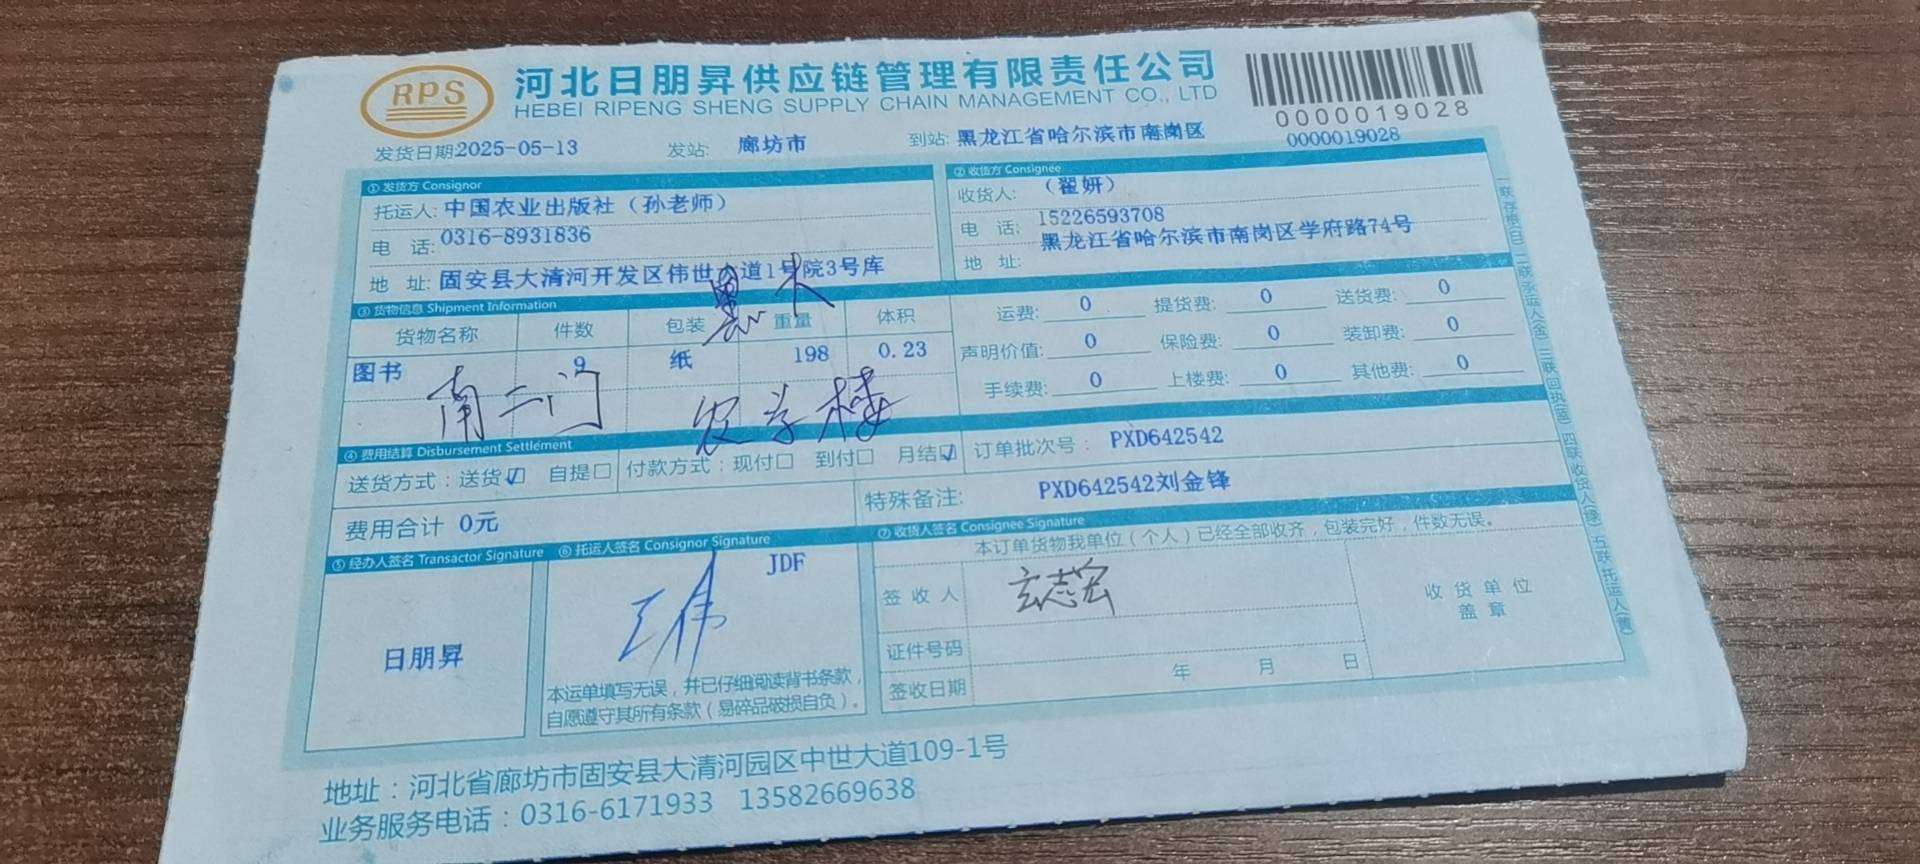 RPS
河北日朋昇供应链管理有限责任公司
HEBEI RIPENG SHENG SUPPLY CHAIN MANAGEMENT CO., LTD
0000019028
发货日期:2025-05-13 发站: 廊坊市 到站: 黑龙江省哈尔滨市南岗区 0000019028
① 发货方 Consignor
托运人: 中国农业出版社（孙老师）
电 话: 0316-8931836
地 址: 固安县大清河开发区伟世大道1号院3号库
② 收货方 Consignee
收货人: （翟妍）
电 话: 15226593708
地 址: 黑龙江省哈尔滨市南岗区学府路74号
③ 货物信息 Shipment Information
货物名称 件数 包装 重量 体积
图书 9 纸 198 0.23
南二门 农学楼
运费: 0 提货费: 0 送货费: 0
声明价值: 0 保险费: 0 装卸费: 0
手续费: 0 上楼费: 0 其他费: 0
④ 费用结算 Disbursement Settlement
送货方式：送货☑ 自提□ 付款方式：现付□ 到付□ 月结☑ 订单批次号： PXD642542
费用合计 0元
特殊备注: PXD642542刘金锋
⑤ 经办人签名 Transactor Signature
日朋昇
⑥ 托运人签名 Consignor Signature
JDF
王伟
本运单填写无误，并已仔细阅读背书条款，
自愿遵守其所有条款（易碎品破损自负）。
⑦ 收货人签名 Consignee Signature
本订单货物我单位（个人）已经全部收齐，包装完好，件数无误。
签 收 人 玄志宏
证件号码
签收日期 年 月 日
收 货 单 位
盖 章
地址：河北省廊坊市固安县大清河园区中世大道109-1号
业务服务电话：0316-6171933 13582669638